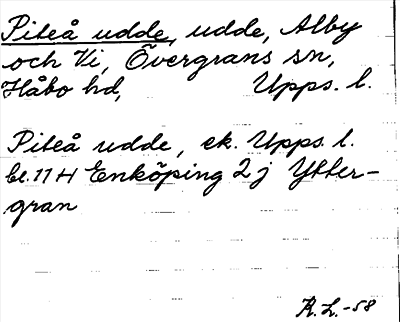 Piteå udde, udde, Alby
och Vi, Övergrans sn,
Håbo hd, Upps. l.
Piteå udde, ek. Upps. l.
bl. 11 H Enköping 2 j Ytter-
gran
R. L. -58